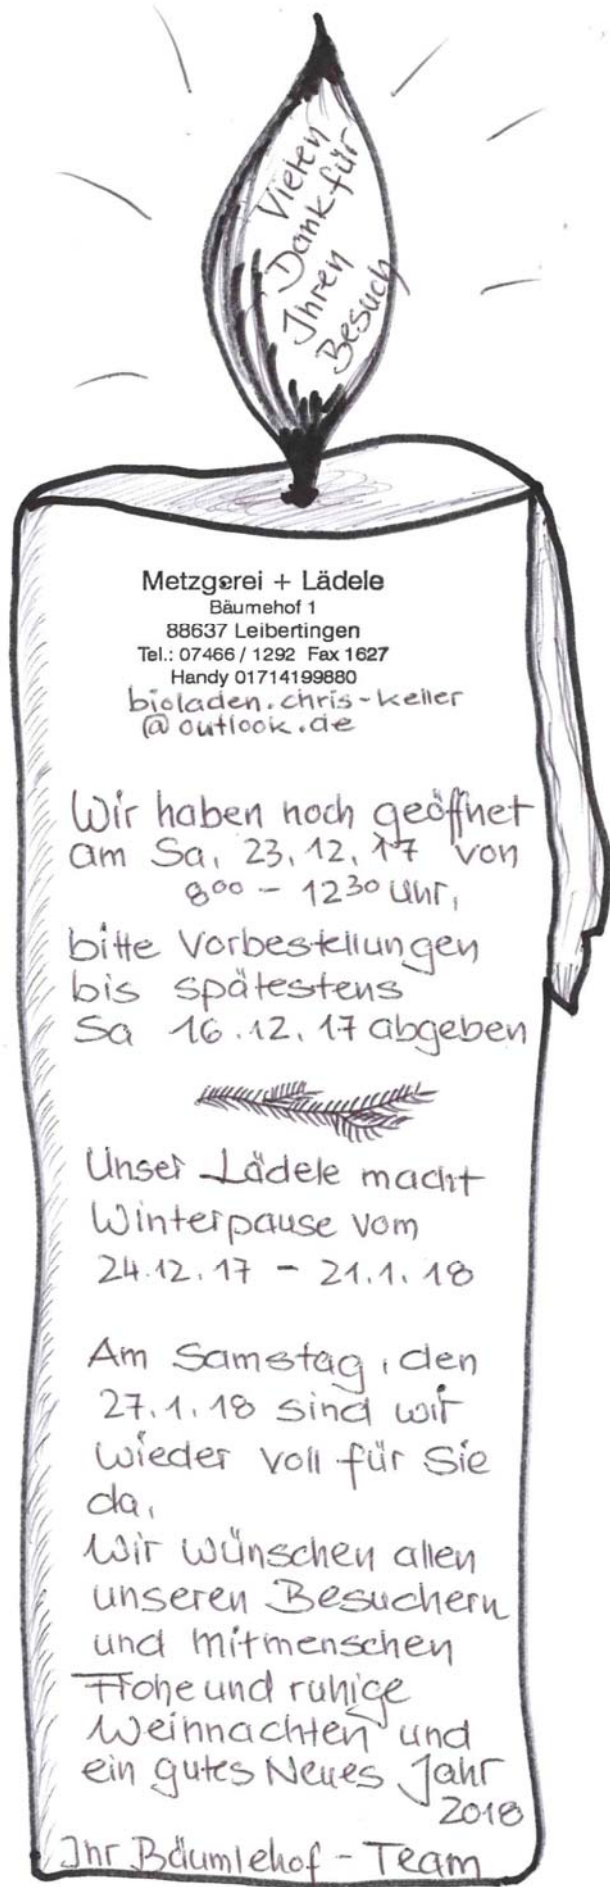 Vielen
Dank für
Ihren
Besuch
Metzgerei + Lädele
Bäumehof 1
88637 Leibertingen
Tel.: 07466 / 1292 Fax 1627
Handy 01714199880
bioladen.chris-keller
@outlook.de
Wir haben noch geöffnet
am Sa, 23.12.17 von
8⁰⁰ - 12³⁰ Uhr,
bitte Vorbestellungen
bis spätestens
Sa 16.12.17 abgeben
Unser Lädele macht
Winterpause vom
24.12.17 - 21.1.18
Am Samstag, den
27.1.18 sind wir
wieder voll für Sie
da,
Wir wünschen allen
unseren Besuchern
und Mitmenschen
Frohe und ruhige
Weihnachten und
ein gutes Neues Jahr
2018
Ihr Bäumlehof - Team